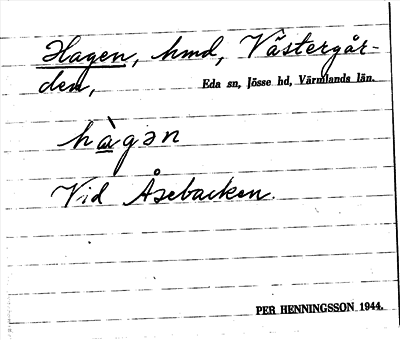 Hagen, hmd, Västergår-
den,
Eda sn, Jösse hd, Värmlands län.
hàgən
Vid Åsebacken.
PER HENNINGSSON 1944.